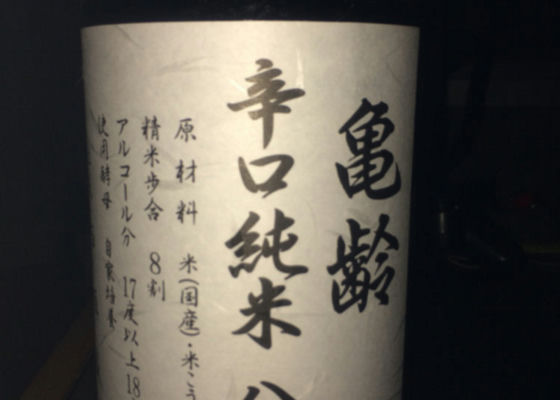 亀齢
辛口純米 八
原材料 米(国産)・米こう
精米歩合 8割
アルコール分 17度以上18
使用酵母 自家培養